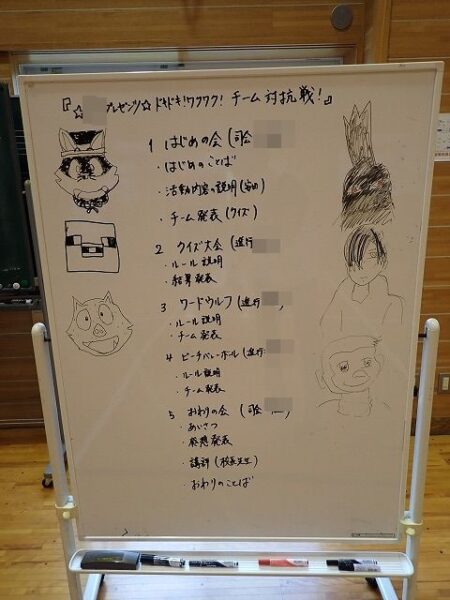 『☆プレゼンツ☆ ドキドキ!ワクワク! チーム対抗戦!』
1 はじめの会 (司会
・はじめのことば
・活動内容の説明
・チーム発表 (クイズ)
2 クイズ大会 (進行
・ルール説明
・結果発表
3 ワードウルフ (進行
・ルール説明
・チーム発表
4 ビーチバレーボール (進行
・ルール説明
・チーム発表
5 おわりの会 (司会
・あいさつ
・感想発表
・講評 (校長先生)
・おわりのことば